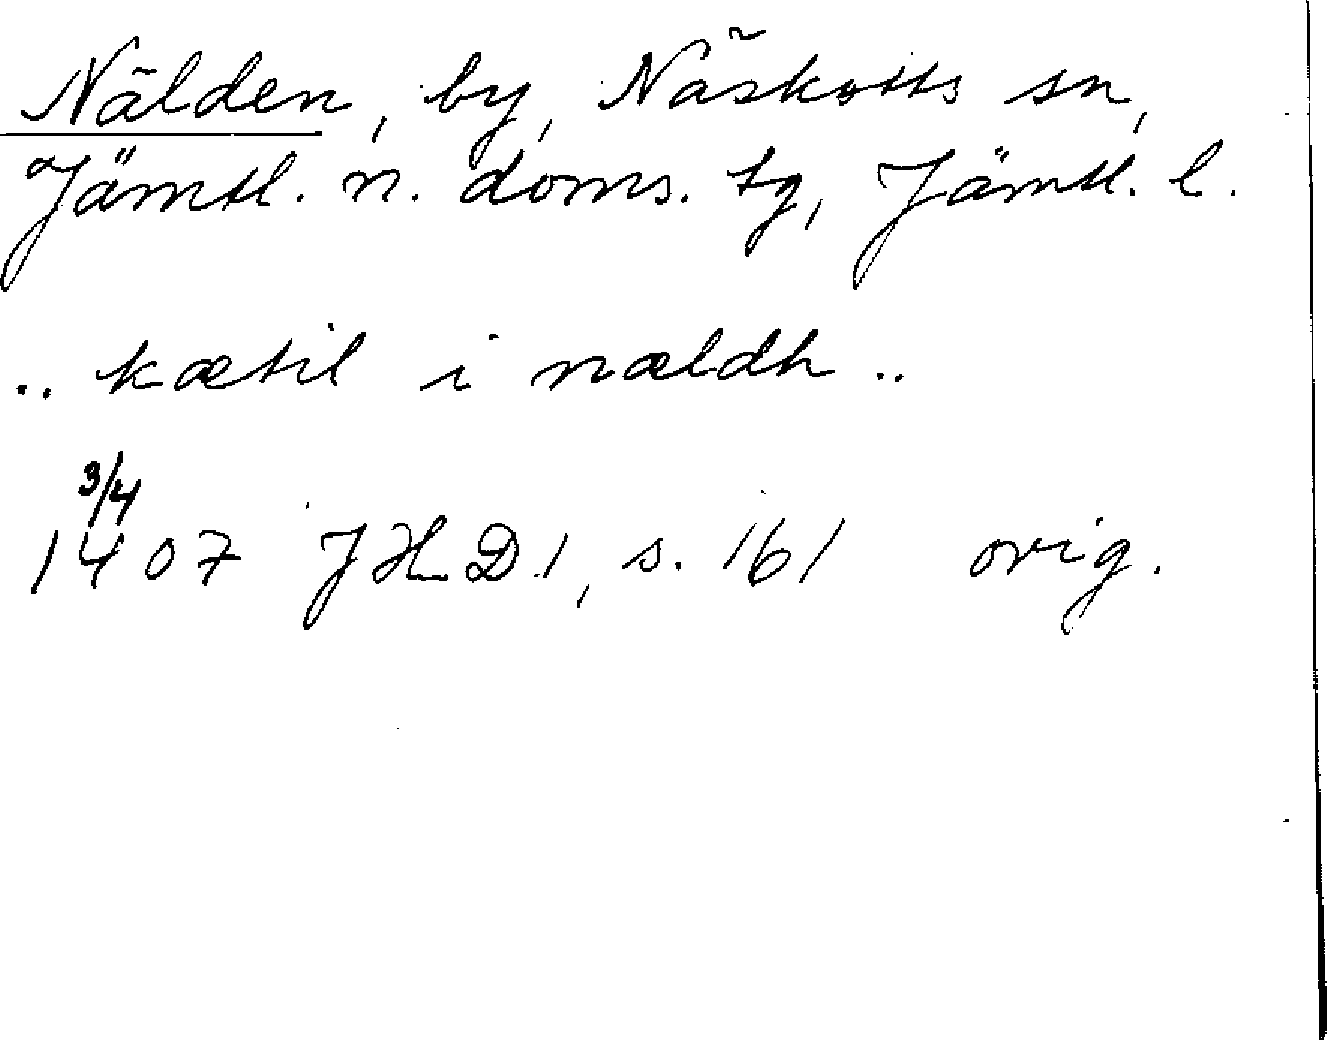 Nälden, by, Näskotts sn,
Jämtl. n. doms. tg, Jämtl. l.
.. kætil i nældh ..
3/4
1407 JHD 1, s. 161 orig.